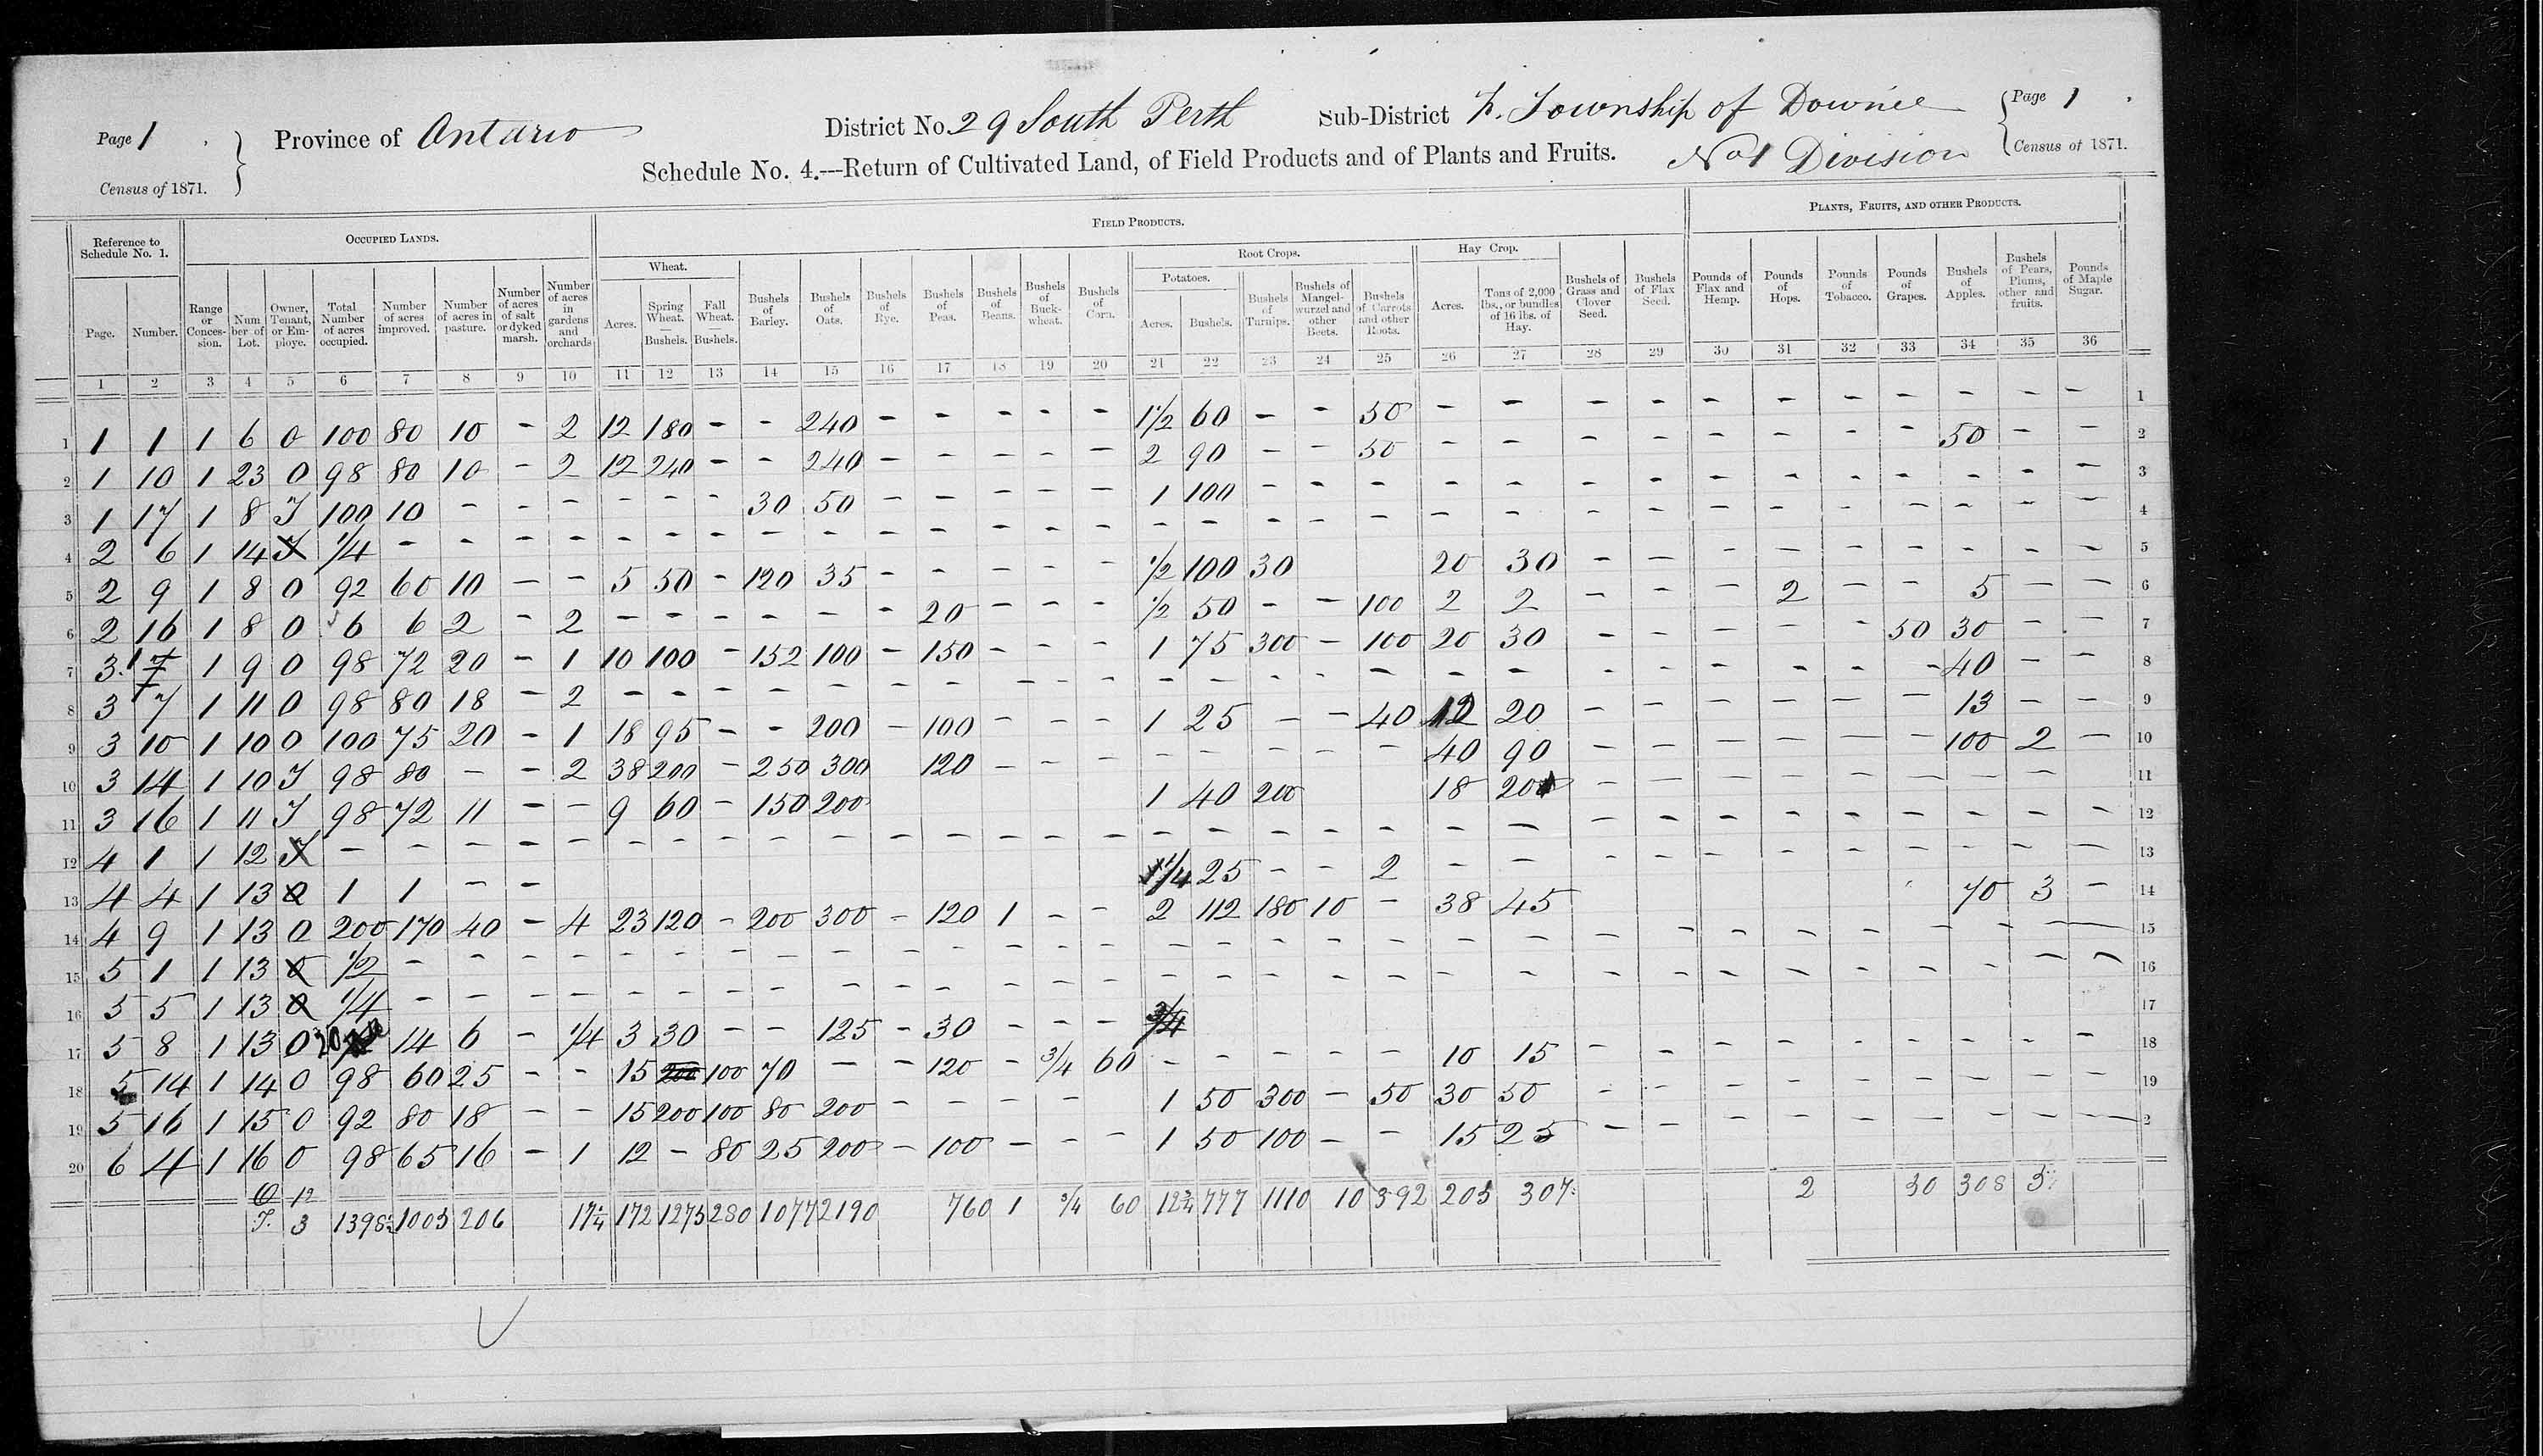 Page 1 . Province of Ontario District No. 29 South Perth Sub-District F. Township of Downie Page 1 .
Census of 1871. Schedule No. 4.---Return of Cultivated Land, of Field Products and of Plants and Fruits. No 1 Division Census of 1871.
Reference to Schedule No. 1. OCCUPIED LANDS. FIELD PRODUCTS. PLANTS, FRUITS, AND OTHER PRODUCTS.
Wheat. Root Crops. Potatoes. Hay Crop.
Page. Number. Range or Conces-sion. Num ber of Lot. Owner, Tenant, or Em-ploye. Total Number of acres occupied. Number of acres improved. Number of acres in pasture. Number of acres of salt or dyked marsh. Number of acres in gardens and orchards Acres. Spring Wheat. — Bushels. Fall Wheat. — Bushels. Bushels of Barley. Bushels of Oats. Bushels of Rye. Bushels of Peas. Bushels of Beans. Bushels of Buck-wheat. Bushels of Corn. Acres. Bushels. Bushels of Turnips. Bushels of Mangel-wurzel and other Beets. Bushels of Carrots and other Roots. Acres. Tons of 2,000 lbs., or bundles of 16 lbs. of Hay. Bushels of Grass and Clover Seed. Bushels of Flax Seed. Pounds of Flax and Hemp. Pounds of Hops. Pounds of Tobacco. Pounds of Grapes. Bushels of Apples. Bushels of Pears, Plums, other and fruits. Pounds of Maple Sugar.
1 2 3 4 5 6 7 8 9 10 11 12 13 14 15 16 17 18 19 20 21 22 23 24 25 26 27 28 29 30 31 32 33 34 35 36
1 1 1 1 6 O 100 80 10 - 2 12 180 - - 240 - - - - - 1 1/2 60 - - 50 - - - - - - - - - - - 1
2 1 10 1 23 O 98 80 10 - 2 12 240 - - 240 - - - - - 2 90 - - 50 - - - - - - - - 50 - - 2
3 1 17 1 8 T 100 10 - - - - - - 30 50 - - - - - 1 100 - - - - - - - - - - - - - - 3
4 2 6 1 14 T 1/4 - - - - - - - - - - - - - - - - - - - - - - - - - - - - - - 4
5 2 9 1 8 O 92 60 10 - - 5 50 - 120 35 - - - - - 1/2 100 30 20 30 - - - - - - - - - 5
6 2 16 1 8 O 6 6 2 - 2 - - - - - - 20 - - - 1/2 50 - - 100 2 2 - - - 2 - - 5 - - 6
7 3 1 9 O 98 72 20 - 1 10 100 - 152 100 - 150 - - - 1 75 300 - 100 20 30 - - - - - 50 30 - - 7
8 3 7 1 11 O 98 80 18 - 2 - - - - - - - - - - - - - - - - - - - - - - - 40 - - 8
9 3 10 1 10 O 100 75 20 - 1 18 95 - - 200 - 100 - - - 1 25 - - 40 12 20 - - - - - - 13 - - 9
10 3 14 1 10 T 98 80 - - 2 38 200 - 250 300 120 - - - - - - - - 40 90 - - - - - - 100 2 - 10
11 3 16 1 11 T 98 72 11 - - 9 60 - 150 200 1 40 200 18 20 - - - - - - - - 11
12 4 1 1 12 T - - - - - - - - - - - - - - - - - - - - - - - - - - - - - - - 12
13 4 4 1 13 O 1 1 - - 1/4 25 - - 2 - - - - - - - - - - - 13
14 4 9 1 13 O 200 170 40 - 4 23 120 - 200 300 - 120 1 - - 2 112 180 10 - 38 45 70 3 - 14
15 5 1 1 13 O 1/2 - - - - - - - - - - - - - - - - - - - - - - - - - - - - - - 15
16 5 5 1 13 O 1/4 - - - - - - - - - - - - - - - - - - - - - - - - - - - - - - 16
17 5 8 1 13 O 20 14 6 - 1/4 3 30 - - 125 - 30 - - - 3/4 17
18 5 14 1 14 O 98 60 25 - - 15 200 100 70 - - 120 - 3/4 60 - - - - - 10 15 - - - - - - - - - 18
19 5 16 1 15 O 92 80 18 - - 15 200 100 80 200 - - - - - 1 50 300 - 50 30 50 - - - - - - - - - 19
20 6 4 1 16 O 98 65 16 - 1 12 - 80 25 200 - 100 - - - 1 50 100 - - 15 25 - - - - - - - - - 2
O 12
T. 3 1398 1005 206 17 1/4 172 1275 280 1077 2190 760 1 3/4 60 12 3/4 777 1110 10 392 205 307 2 30 308 5